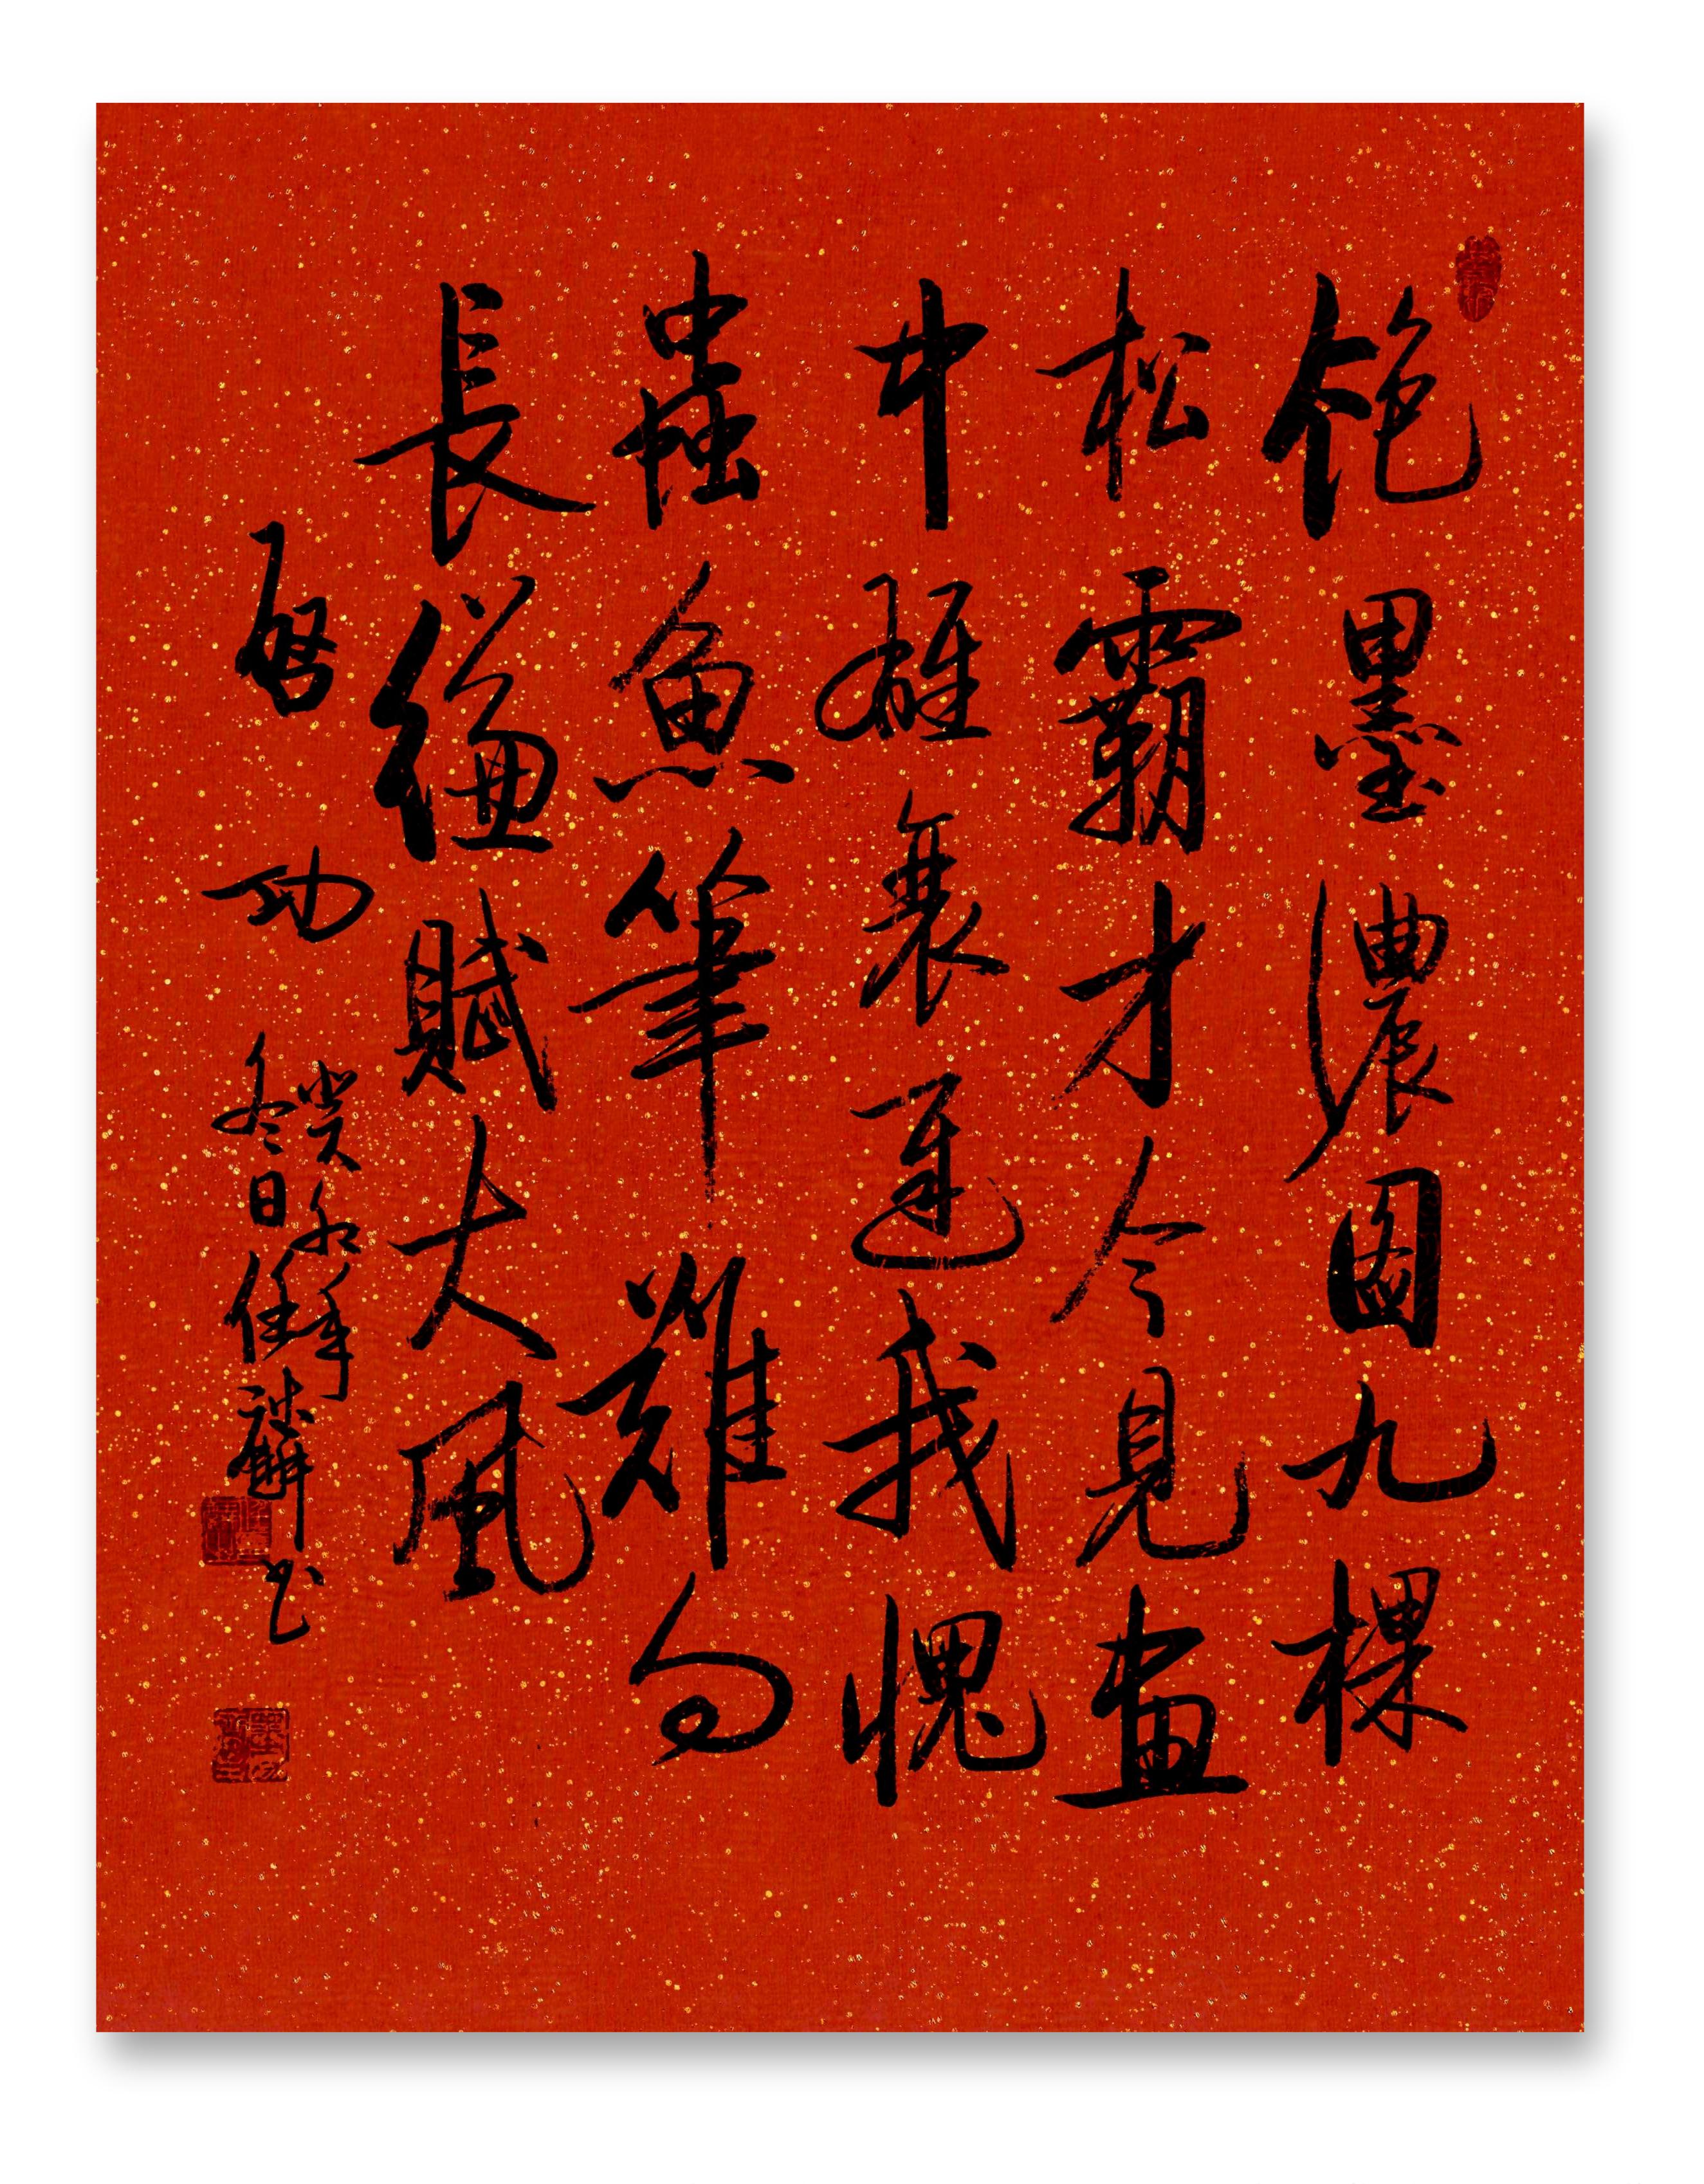 飽墨濃图九棵
松霸才今見畫
中雄衰遲我愧
蟲魚筆難向
長縑賦大風
啓功
癸卯年
冬日任麟书